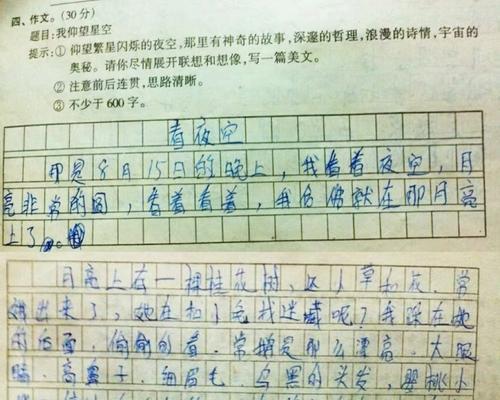 四、作文。(30分)
题目:我仰望星空
提示:① 仰望繁星闪烁的夜空,那里有神奇的故事,深邃的哲理,浪漫的诗情,宇宙的
奥秘。请你尽情展开联想和想像,写一篇美文。
② 注意前后连贯,思路清晰。
③ 不少于600字。
看夜空
那是8月15日的晚上,我看着夜空,月
亮非常的圆,看着看着,我仿佛就在那月亮
上了。
月亮上有一棵桂花树,还有小草和花。常
娥出来了,她在和了毛我迷藏呢?我躲在她
的后面,偷偷的看。常娥是那么漂亮。大眼
睛。高鼻子。细眉毛。乌黑的头发,樱桃小